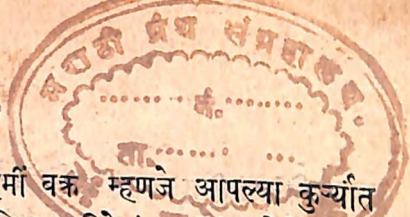 मराठी ग्रंथ संग्रहालय.
सं.
ता.
मीं वक्र म्हणजे आपल्या कुऱ्यांत